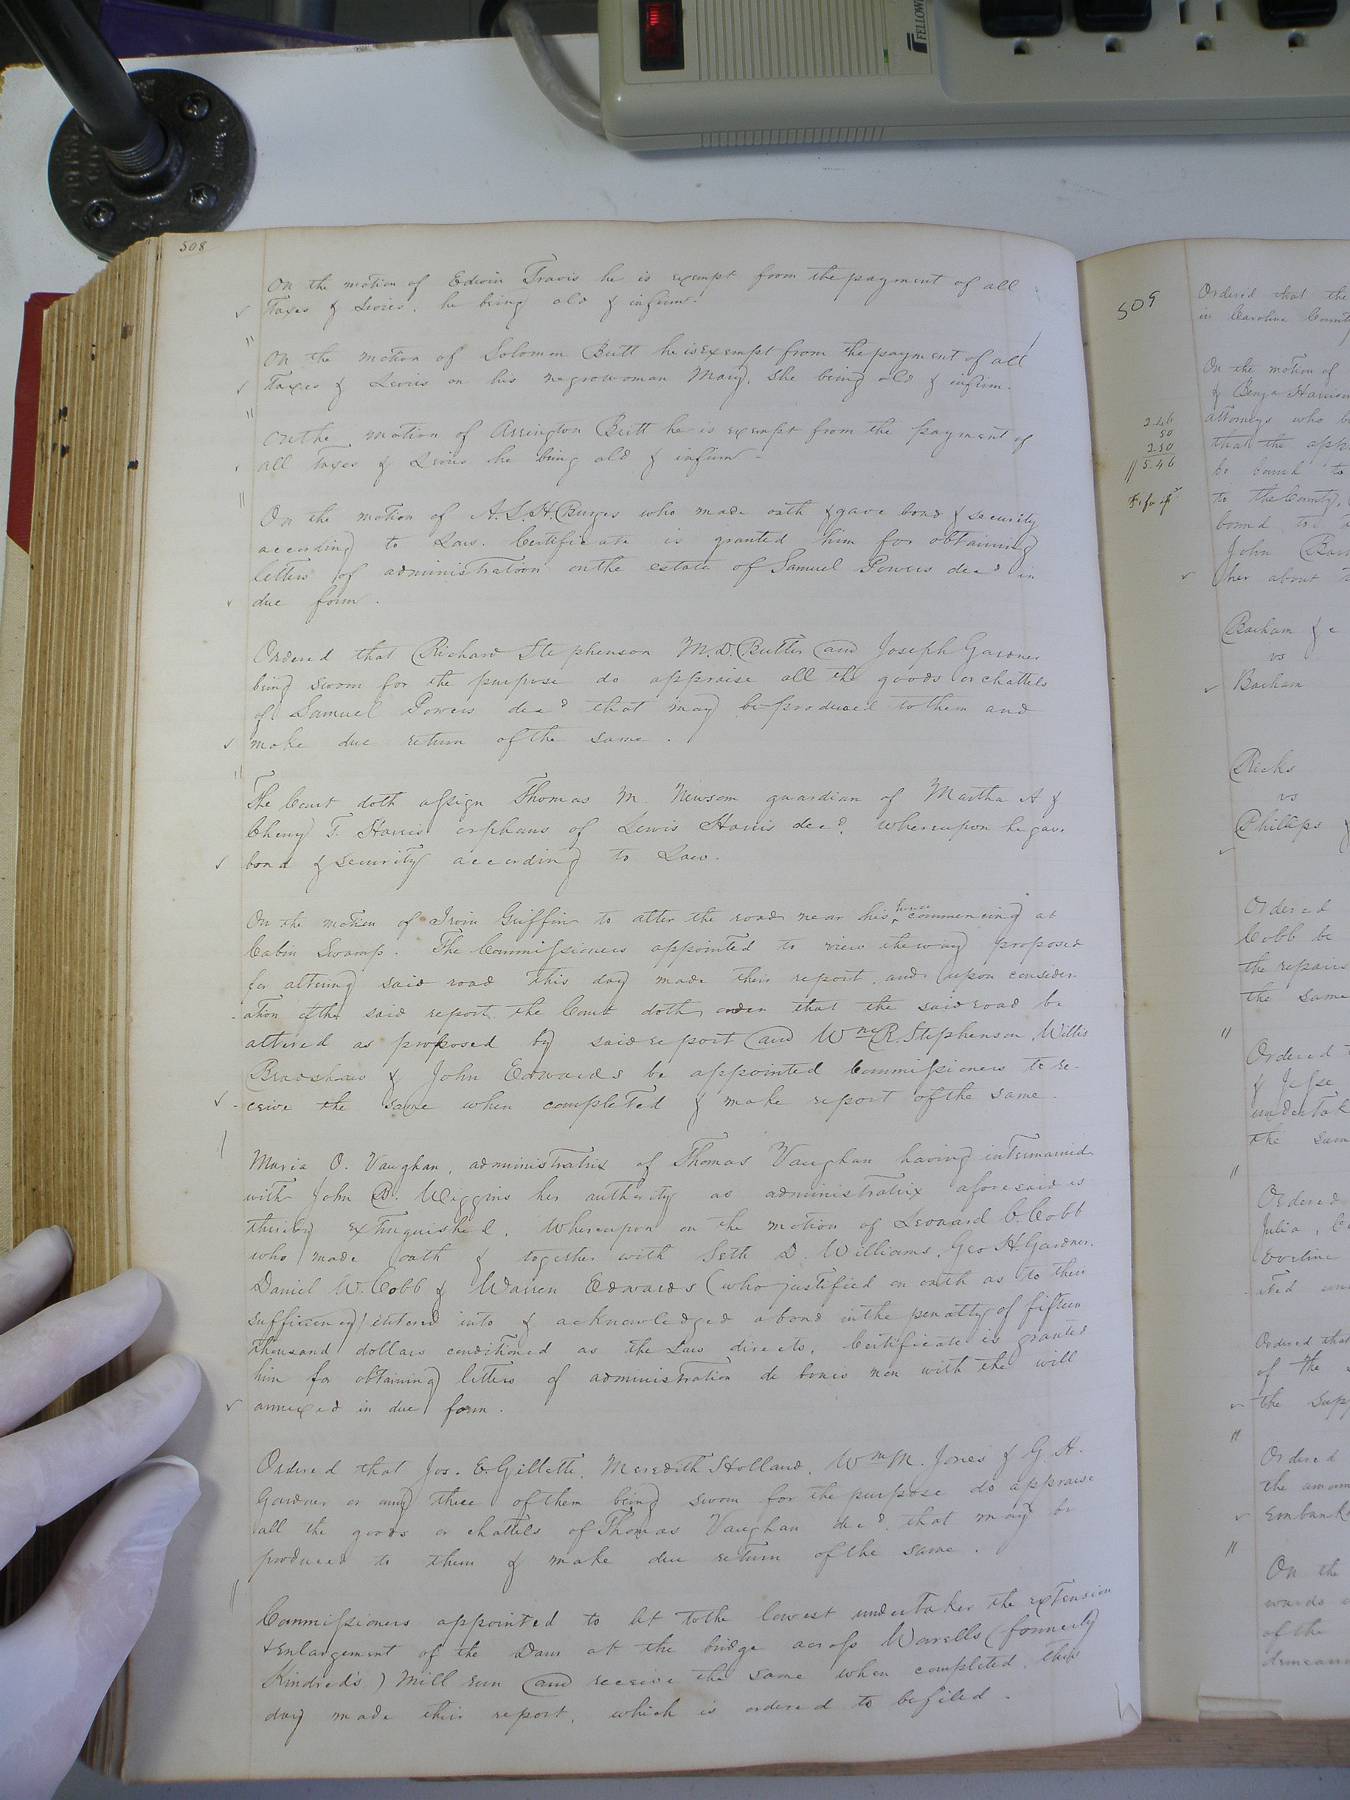 508
On the motion of Edwin Travis he is exempt from the payment of all
Taxes & Levies, he being old & infirm.
On the motion of Solomon Britt he is exempt from the payment of all
Taxes & Levies on his negro woman Mary, she being old & infirm.
On the motion of Arrington Britt he is exempt from the payment of
all Taxes & Levies he being old & infirm.
On the motion of A.S.H. Burges who made oath & gave bond & security
according to Law. Certificate is granted him for obtaining
letters of administration on the estate of Samuel Powers decd in
due form.
Ordered that Richard Stephenson M.D. Butler and Joseph Gardner
being sworn for the purpose do appraise all the goods or chattels
of Samuel Powers decd that may be produced to them and
make due return of the same.
The Court doth assign Thomas M. Newsom guardian of Martha A &
T. Harris orphans of Lewis Harris decd, whereupon he gave
bond & security according to Law.
On the motion of Irvin Griffin to alter the road near his house commencing at
Cabin Swamp. The Commissioners appointed to view the way proposed
for altering said road this day made their report, and upon consider-
ation of the said report the Court doth order that the said road be
altered as proposed by said report and Wm R. Stephenson, Willis
Bradshaw & John Edwards be appointed Commissioners to re-
ceive the same when completed & make report of the same.
Maria O. Vaughan, administratrix of Thomas Vaughan having intermarried
with John B. Wiggins her authority as administratrix aforesaid is
thereby extinguished. Whereupon on the motion of Leonard C. Cobb
who made oath & together with Seth D. Williams, Geo H. Gardner,
Daniel W. Cobb & Warren Edwards (who justified on oath as to their
sufficiency) entered into & acknowledged a bond in the penalty of fifteen
thousand dollars conditioned as the Law directs, Certificate is granted
him for obtaining letters of administration de bonis non with the will
annexed in due form.
Ordered that Jos. E. Gillette, Meredith Holland, Wm M. Jones & G. H.
Gardner or any three of them being sworn for the purpose do appraise
all the goods or chattels of Thomas Vaughan decd. that may be
produced to them & make due return of the same.
Commissioners appointed to let to the lowest undertaker the extension
& Enlargement of the Dam at the bridge across Worrells (formerly
Kindred's) Mill run and receive the same when completed, this
day made their report, which is ordered to be filed.
509
Ordered that the
in Caroline
On the motion of
& Benja Harrison
attorneys who
that the
be bound to
to the County,
bound
John
her about
2.46
50
2.50
5.46
Barham &
vs
Barham
Ricks
vs
Phillips
Ordered
Cobb be
the repairs
the same
Ordered
& Jesse
the
Ordered
Julia,
Ordered that
of the
the
Ordered
the
On the
of the
FELLOWE